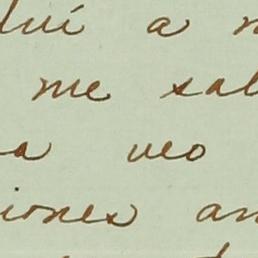 luí a
me sal
a veo
iones an